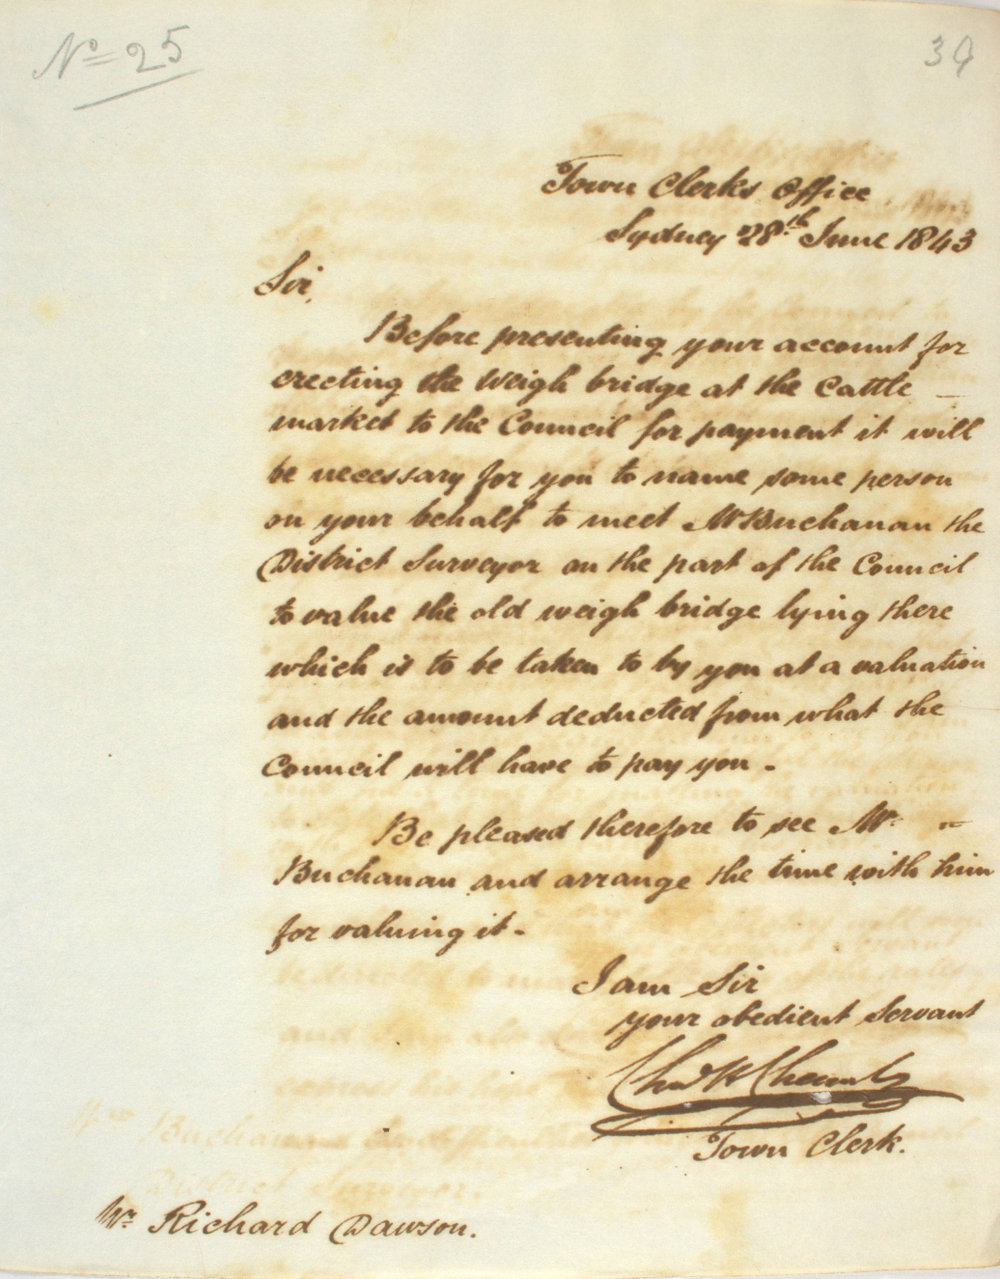 No 25
39
Town Clerks Office
Sydney 28th June 1843
Sir,
Before presenting your account for
erecting the Weigh bridge at the Cattle
market to the Council for payment it will
be necessary for you to name some person
on your behalf to meet Mr Buchanan the
District Surveyor on the part of the Council
to value the old weigh bridge lying there
which is to be taken to by you at a valuation
and the amount deducted from what the
Council will have to pay you.
Be pleased therefore to see Mr.
Buchanan and arrange the time with him
for valuing it.
I am Sir
your obedient Servant
Chas H Chamb
Town Clerk.
Mr Richard Dawson.